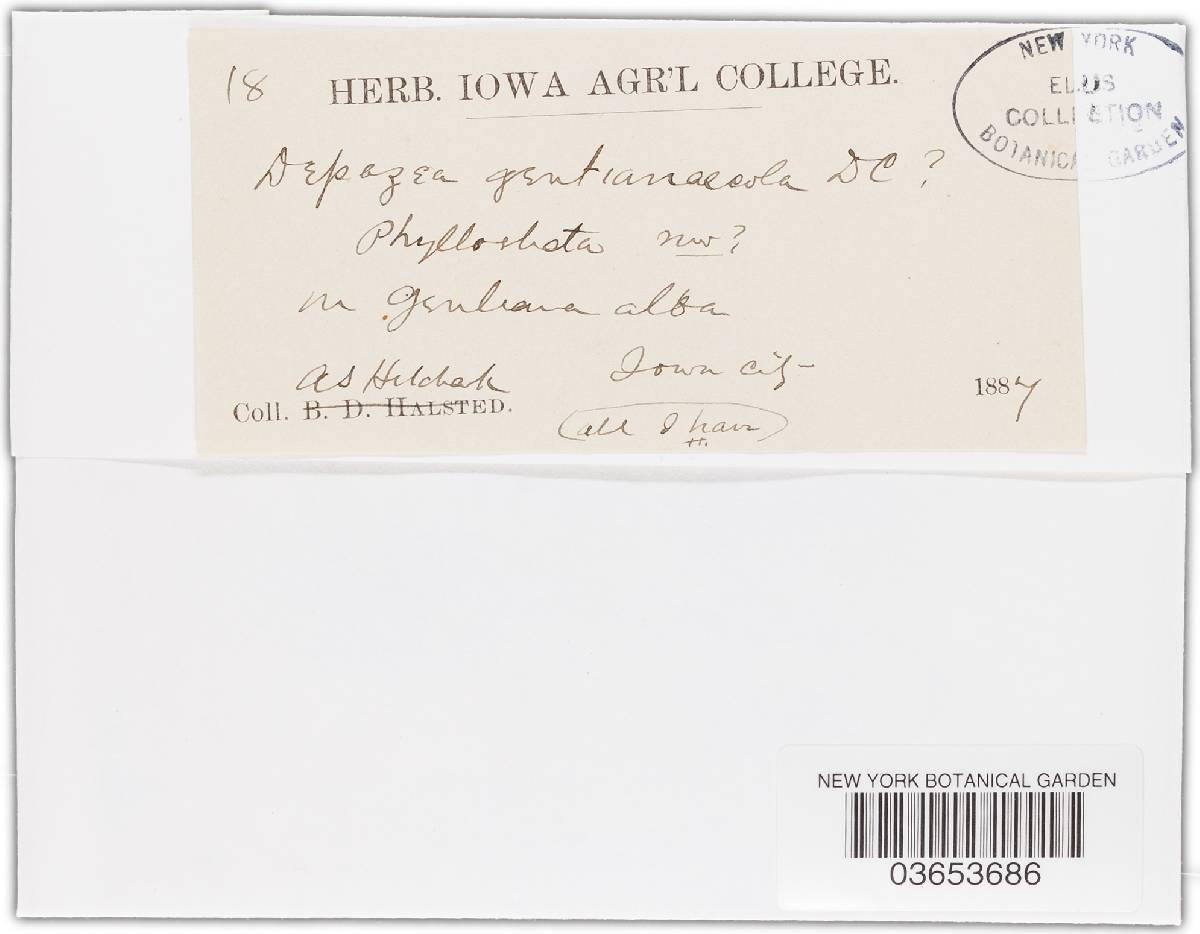 18 HERB. IOWA AGR'L COLLEGE.
NEW YORK
ELLIS
COLLECTION
BOTANICAL GARDEN
Depazea gentianaecola DC ?
Phyllosticta ?
on Gentiana alba
A S Hitchcock Iowa City
Coll. B. D. HALSTED. 1887
(all I have)
H.
NEW YORK BOTANICAL GARDEN
03653686